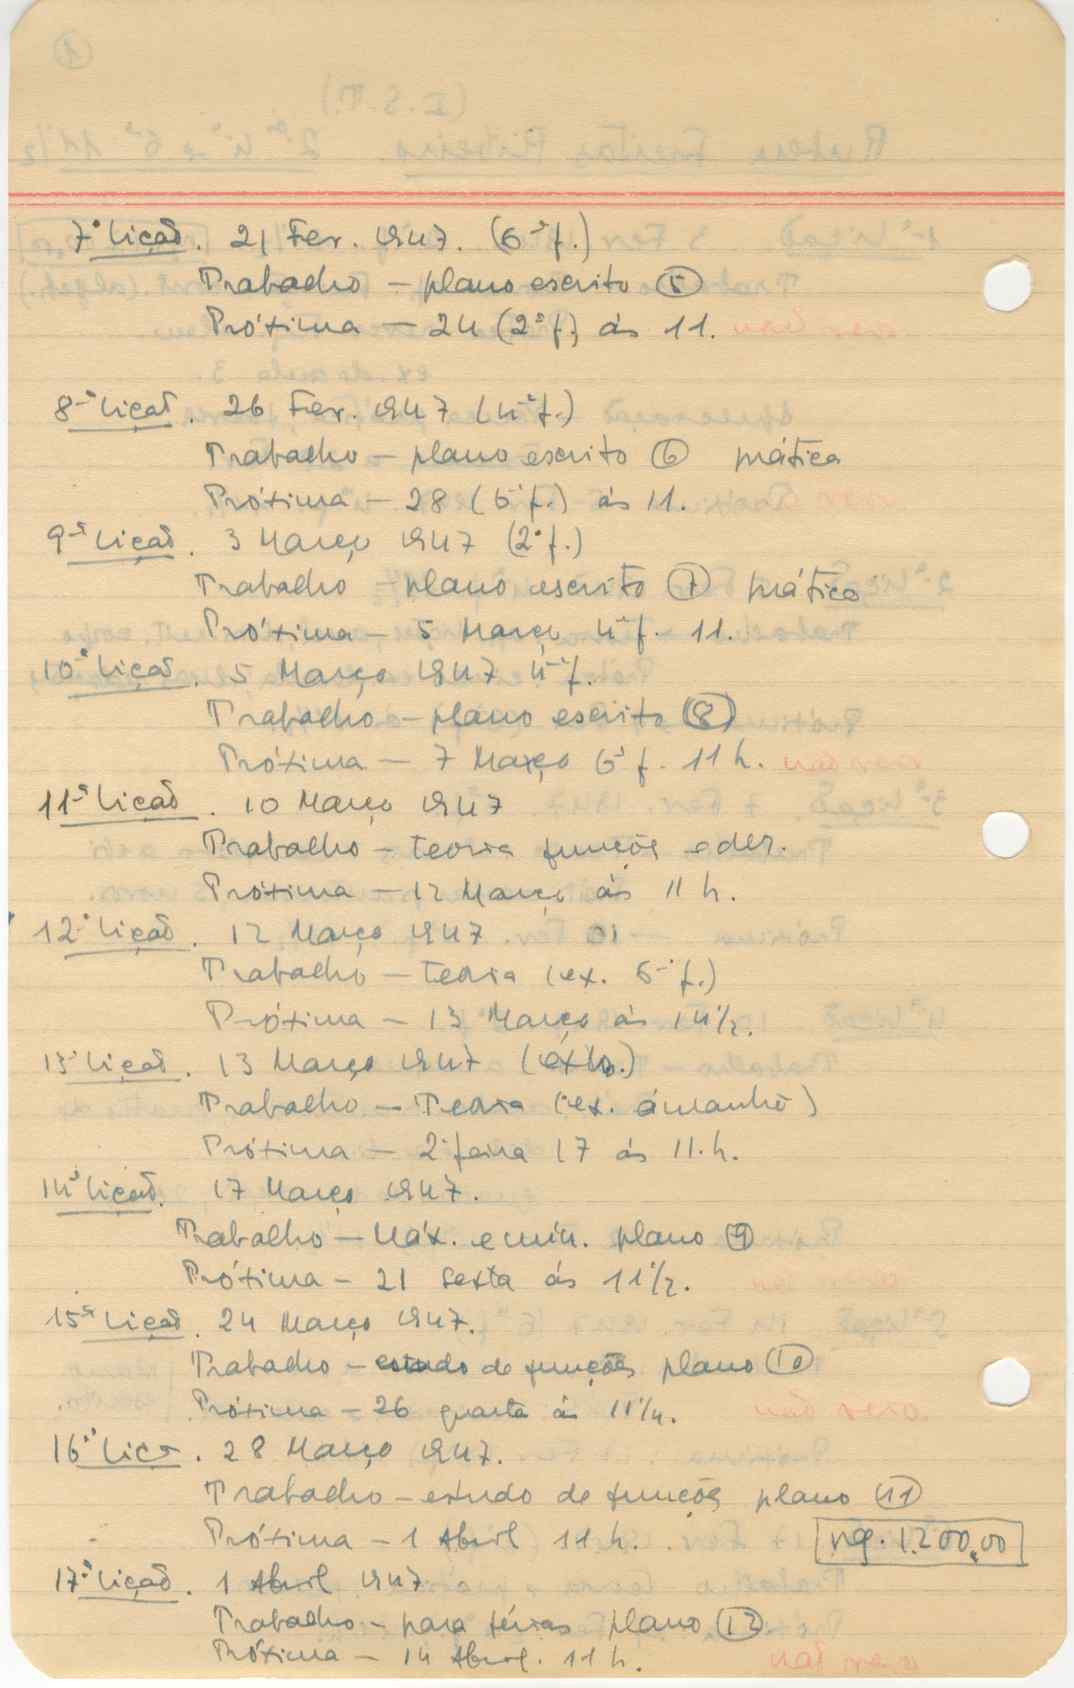 7ª Lição. 21 Fev. 1947. (6ª f.)
Trabalho – plano escrito 5
Próxima – 24 (2ª f.) às 11.
8ª Lição. 26 Fev. 1947 (4ª f.)
Trabalho – plano escrito 6 prática
Próxima – 28 (6ª f.) às 11.
9ª Lição. 3 Março 1947 (2ª f.)
Trabalho plano escrito 7 prática
Próxima – 5 Março 4ª f. 11.
10ª Lição. 5 Março 1947 4ª f.
Trabalho – plano escrito 8
Próxima – 7 Março 6ª f. 11 h.
11ª Lição. 10 Março 1947
Trabalho – teoria funções e der.
Próxima – 12 Março às 11 h.
12ª Lição. 12 Março 1947
Trabalho – teoria (ex. 6ª f.)
Próxima – 13 Março às 14 1/2.
13ª Lição. 13 Março 1947
Trabalho – Teoria (ex. àmanhã)
Próxima – 2ª feira 17 às 11. h.
14ª Lição. 17 Março 1947.
Trabalho – Máx. e mín. plano 9
Próxima – 21 sexta às 11 1/2.
15ª Lição. 24 Março 1947.
Trabalho – estudo de funções plano 10
Próxima – 26 quarta às 11 1/4.
16ª Liç. 28 Março 1947.
Trabalho – estudo de funções plano 11
Próxima – 1 Abril 11 h.
1.200,00
17ª Lição. 1 Abril 1947
Trabalho – para férias plano 12
Próxima – 14 Abril. 11 h.